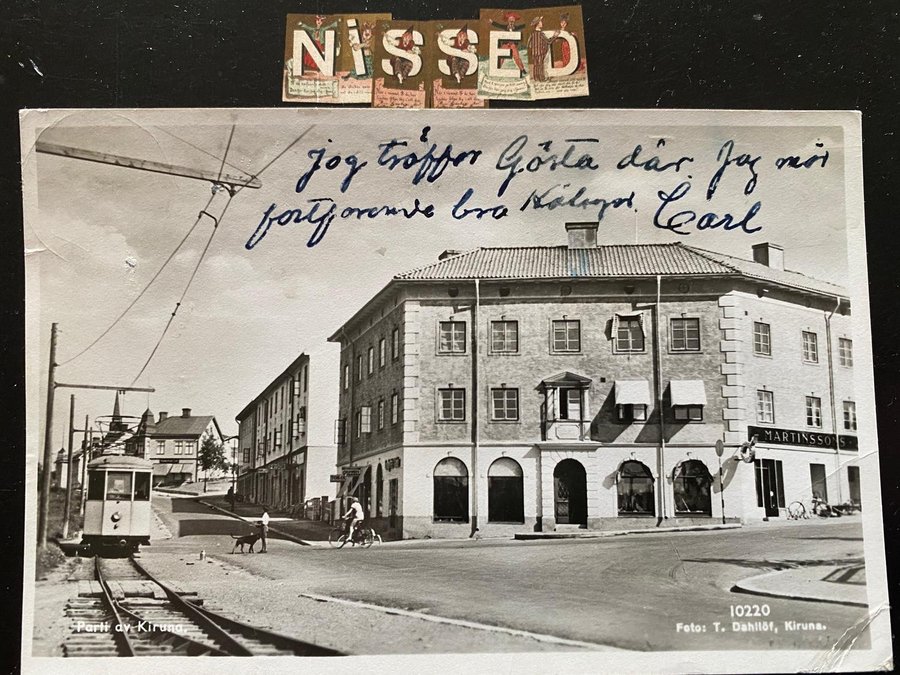 NiSSED
Jag träffar Gösta där. Jag mår
fortfarande bra Hälsngr. Carl
MARTINSSONS
10220
Parti av Kiruna.
Foto: T. Dahllöf, Kiruna.